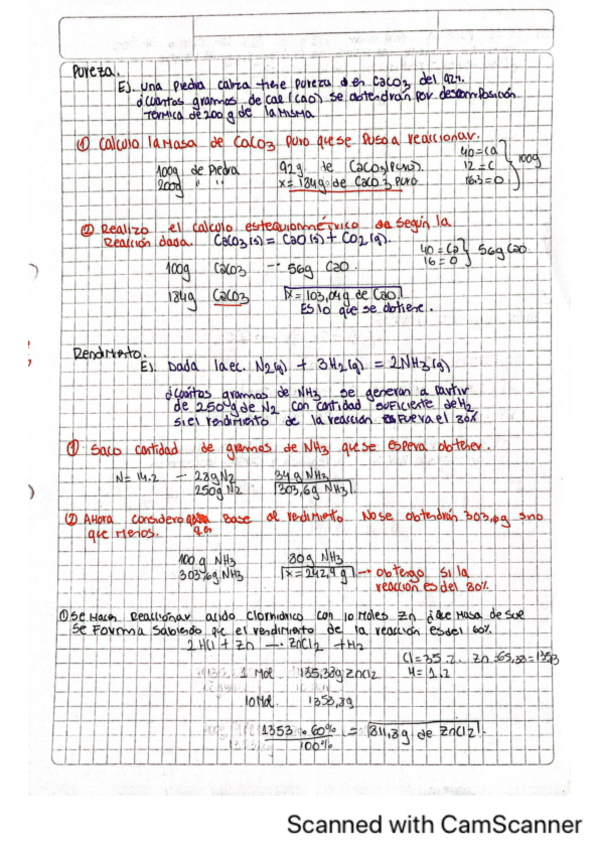 Pureza.
Ej. una piedra caliza tiene pureza en CaCO3 del 92%.
¿Cuantos gramos de cal (CaO) se obtendrán por descomposición
Térmica de 200 g de la misma
① Calculo la masa de CaCO3 puro que se puso a reaccionar.
40=Ca
100g de Piedra 92g de CaCO3 (puro).
12=C
100g
200g " " x=184g de CaCO3 puro
16.3=O
② Realizo el calculo estequiometrico según la
Reacción dada. CaCO3(s) = CaO(s) + CO2(g).
40=Ca
16=O
56g CaO
100g CaCO3 -- 56g CaO.
184g CaCO3 x=103,04g de CaO.
Es lo que se obtiene.
Rendimiento.
Ej. Dada la ec. N2(g) + 3H2(g) = 2NH3(g)
¿Cuántos gramos de NH3 se generan a partir
de 250g de N2 con cantidad suficiente de H2
si el rendimiento de la reacción fuera el 80%
① Saco cantidad de gramos de NH3 que se espera obtener.
N=14.2 - 28g N2 34g NH3
250g N2 303,6g NH3
② Ahora considero base al rendimiento No se obtendrán 303,6g sno
que menos.
100g NH3 80g NH3
303,6g NH3 x=242,9g → obtengo si la
reacción es del 80%.
① Se hacen Reaccionar acido clorhidrico con 10 moles Zn ¿Que masa de sal
se Forma sabiendo que el rendimiento de la reacción es del 60%.
2HCl + Zn — ZnCl2 + H2
Cl=35.2. Zn=65,38=1353
H=1.2
1 Mol 135,38g ZnCl2
10Mol. 1353,8g
1353.60% = 811,8g de ZnCl2.
100%
Scanned with CamScanner